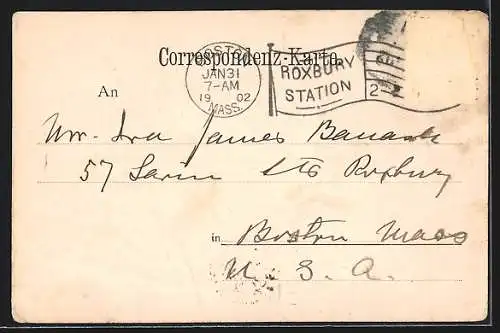 Correspondenz-Karte.
BOSTON
JAN 31
7-AM
1902
MASS.
ROXBURY
STATION
2
An
James
57 Sts Roxbury
in Boston Mass
U. S. A.